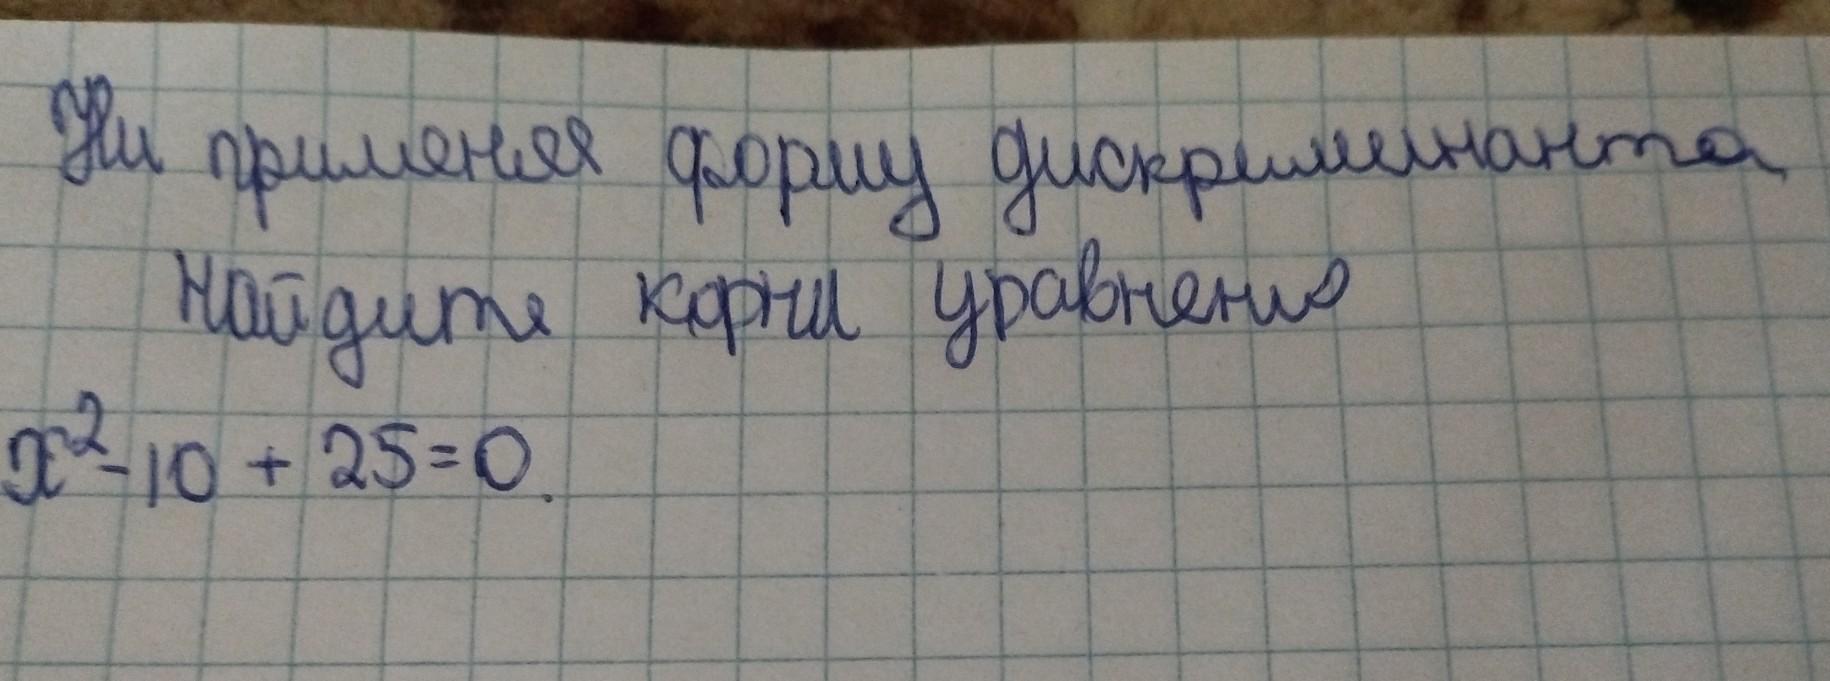 Ни применяя форму дискриминанта
Найдите корни уравнения
x²-10 + 25=0.